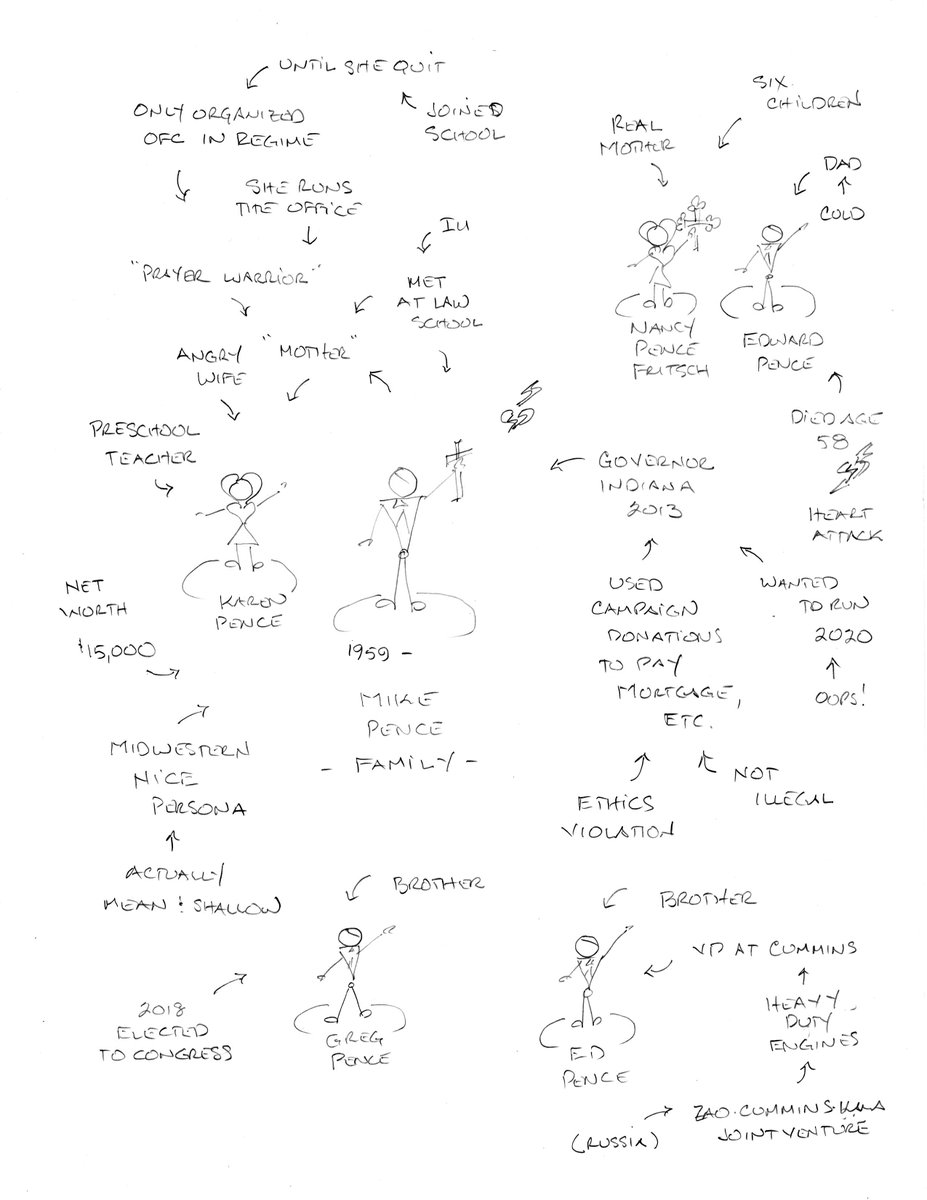 UNTIL SHE QUIT
ONLY ORGANIZED
OFC IN REGIME
JOINED
SCHOOL
SHE RUNS
THE OFFICE
IU
"PRAYER WARRIOR"
MET
AT LAW
SCHOOL
"MOTHER"
ANGRY
WIFE
PRESCHOOL
TEACHER
KAREN
PENCE
NET
WORTH
$15,000
1959 -
MIKE
PENCE
- FAMILY -
MIDWESTERN
NICE
PERSONA
ACTUALLY
MEAN & SHALLOW
SIX
CHILDREN
REAL
MOTHER
DAD
COLD
NANCY
PENCE
FRITSCH
EDWARD
PENCE
DIED AGE
58
HEART
ATTACK
GOVERNOR
INDIANA
2013
USED
CAMPAIGN
DONATIONS
TO PAY
MORTGAGE,
ETC.
WANTED
TO RUN
2020
OOPS!
ETHICS
VIOLATION
NOT
ILLEGAL
BROTHER
2018
ELECTED
TO CONGRESS
GREG
PENCE
BROTHER
VP AT CUMMINS
HEAVY
DUTY
ENGINES
ED
PENCE
ZAO.CUMMINS.KAMA
JOINT VENTURE
(RUSSIA)